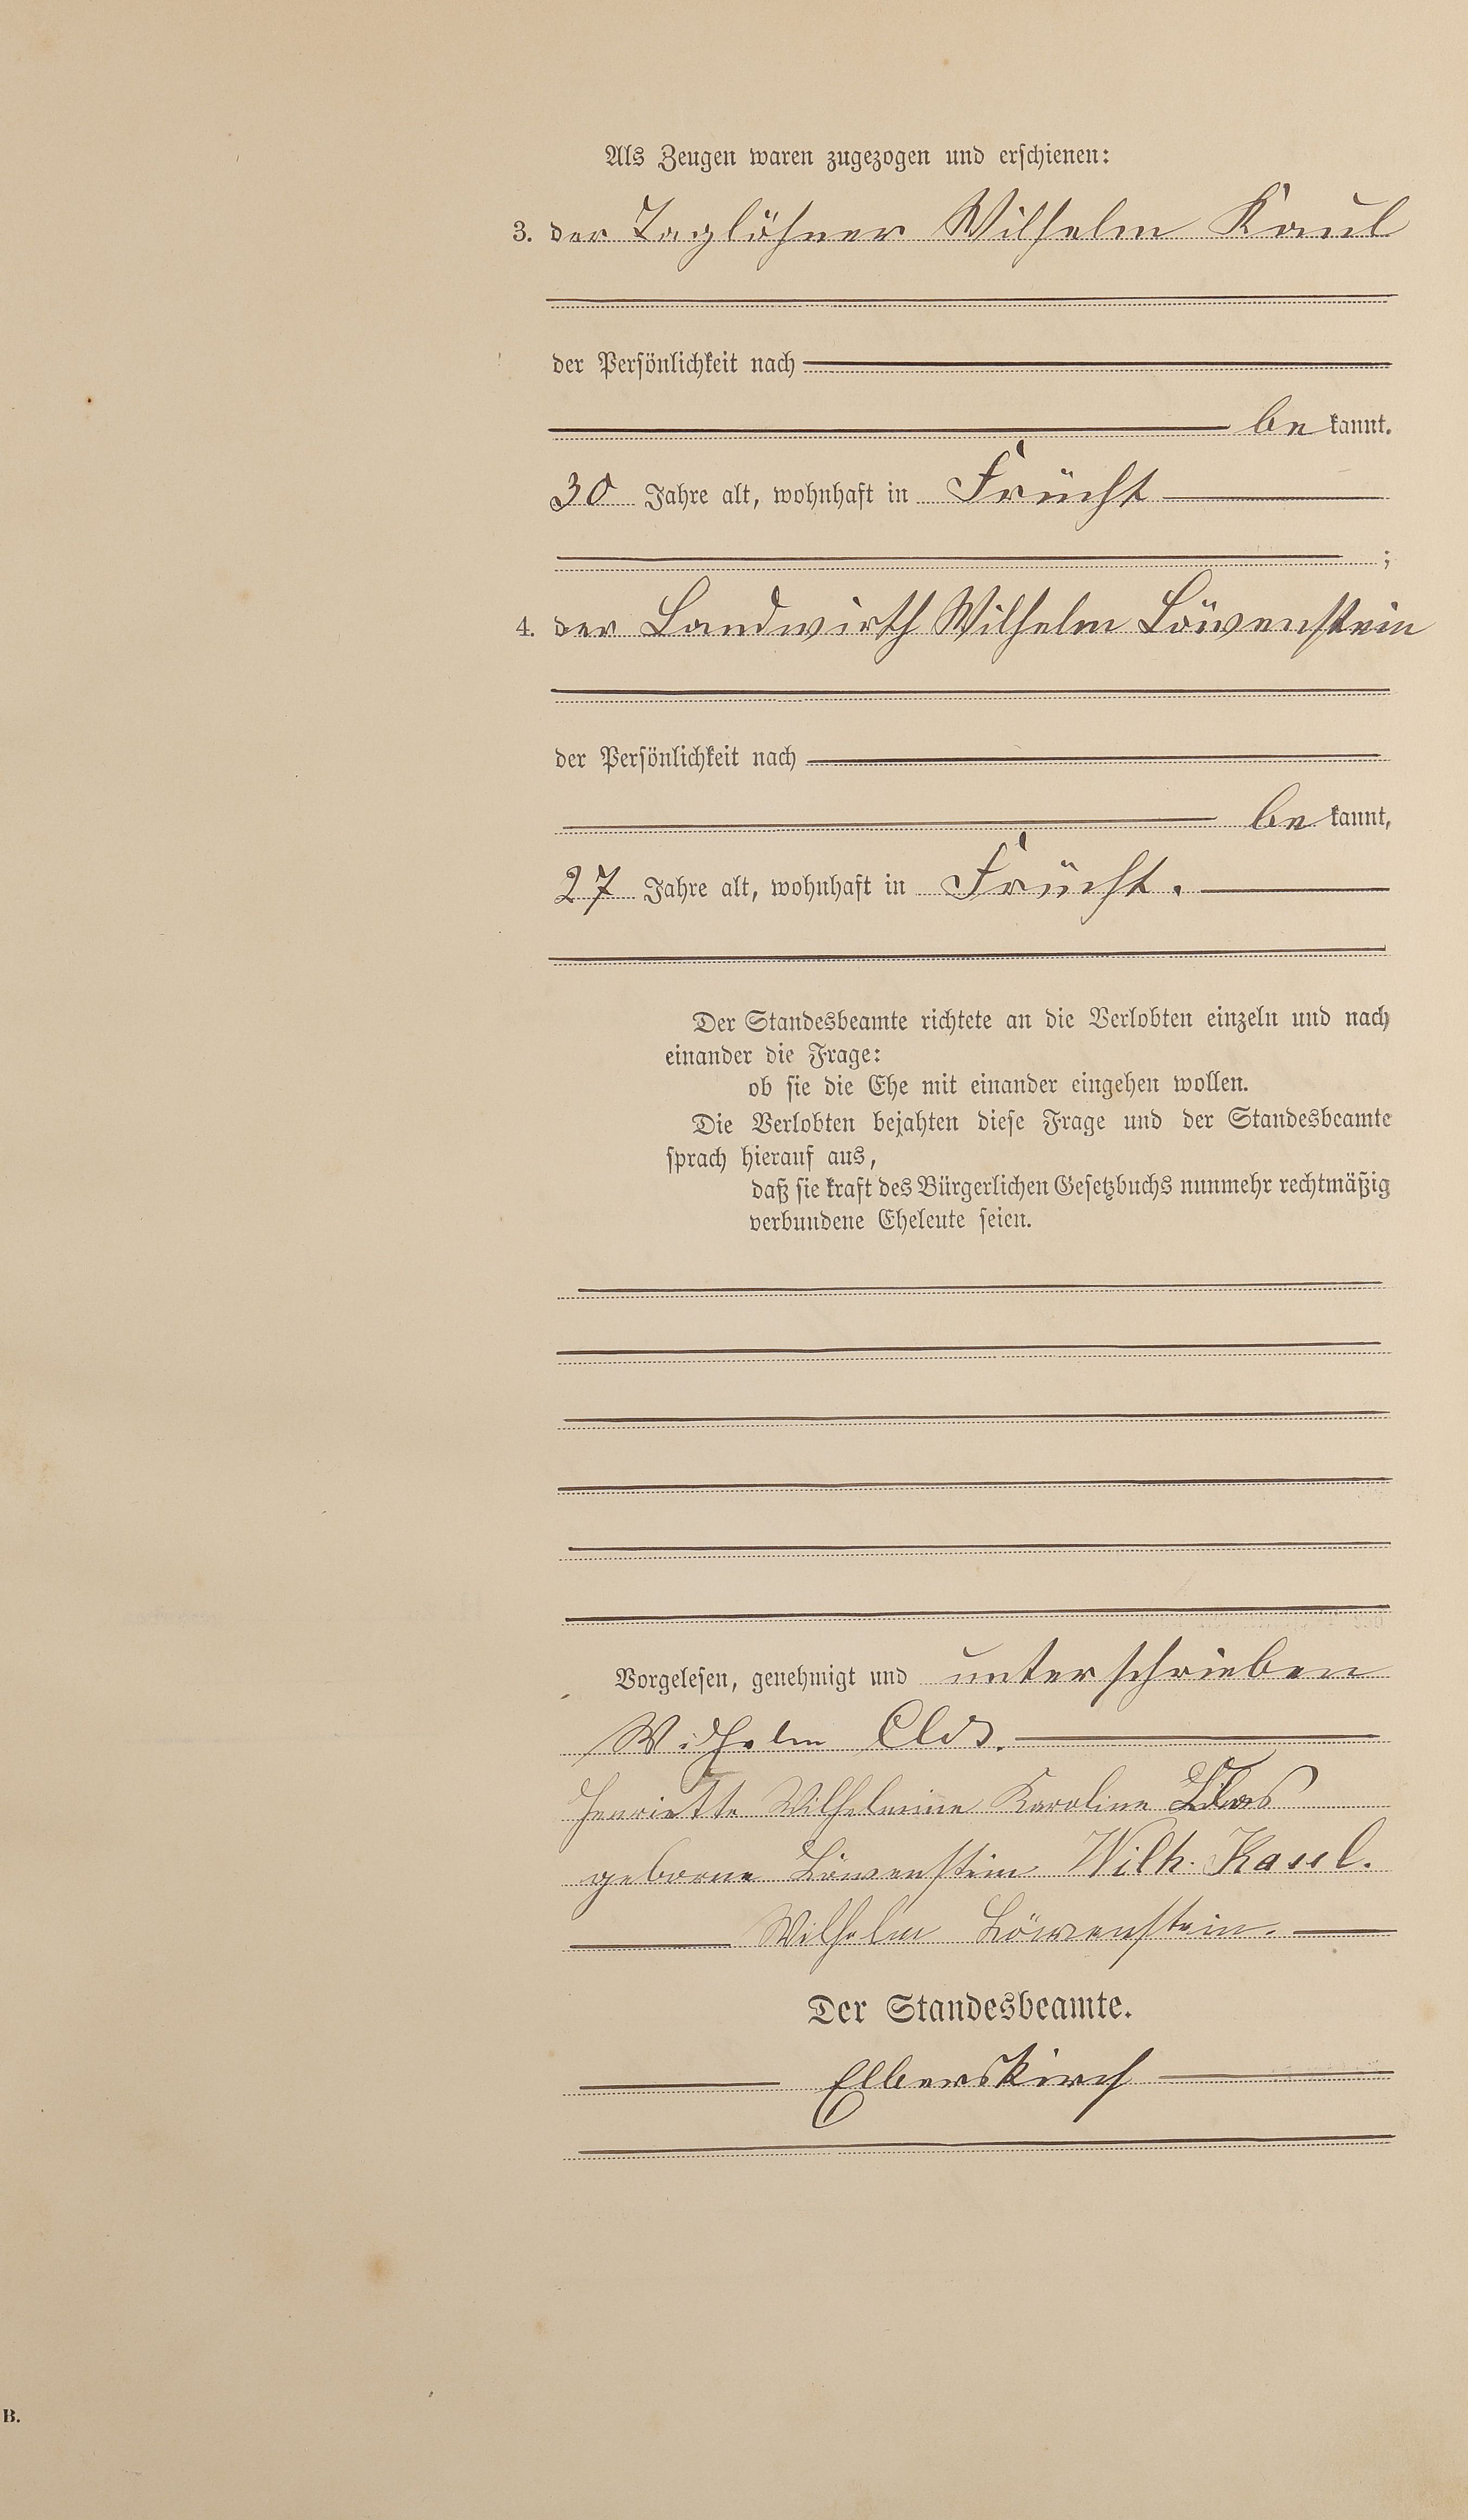 Als Zeugen waren zugezogen und erschienen:
3. der Taglöhner Wilhelm Kaul
der Persönlichkeit nach
be kannt.
30 Jahre alt, wohnhaft in Frücht
;
4. der Landwirth Wilhelm Löwenstein
der Persönlichkeit nach
be kannt,
27 Jahre alt, wohnhaft in Frücht.
Der Standesbeamte richtete an die Verlobten einzeln und nach
einander die Frage:
ob sie die Ehe mit einander eingehen wollen.
Die Verlobten bejahten diese Frage und der Standesbeamte
sprach hierauf aus,
daß sie kraft des Bürgerlichen Gesetzbuchs nunmehr rechtmäßig
verbundene Eheleute seien.
Vorgelesen, genehmigt und unterschrieben
Wilhelm
Henriette Wilhelmine Karoline
geborne Löwenstein Wilh. Kaul.
Wilhelm Löwenstein.
Der Standesbeamte.
Elberskirch
B.